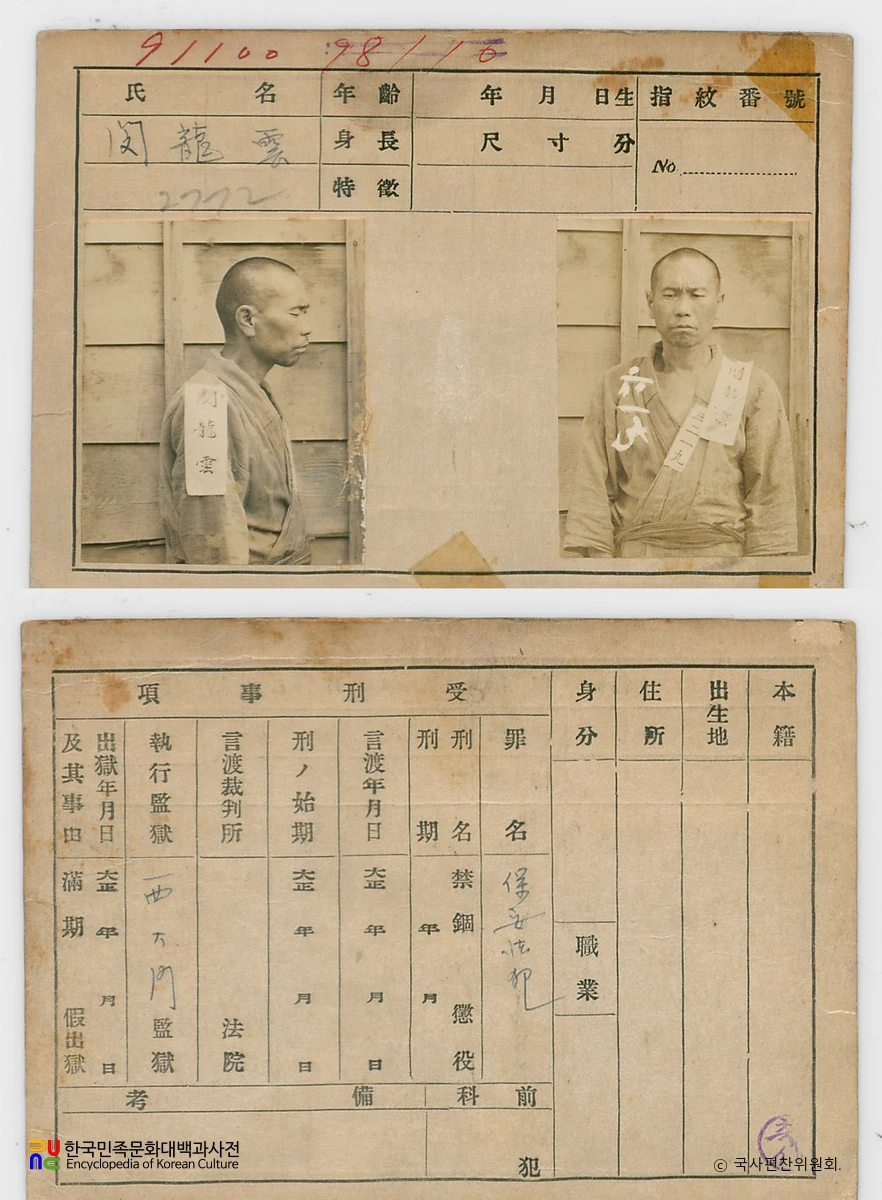 91100 98110
氏名 年齡 年月日生 指紋番號
閔龍雲 身長 尺寸分 No
2772 特徵
閔龍雲
六一七
二二一九
本籍
出生地
住所
身分
職業
受刑事項
罪名 保安法犯
刑名 禁錮 懲役
刑期 年 月
言渡年月日 大正 年 月 日
刑ノ始期 大正 年 月 日
言渡裁判所 法院
執行監獄 西大門 監獄
出獄年月日 大正 年 月 日
及其事由 滿期 假出獄
前科 備考
犯
한국민족문화대백과사전
Encyclopedia of Korean Culture
© 국사편찬위원회.